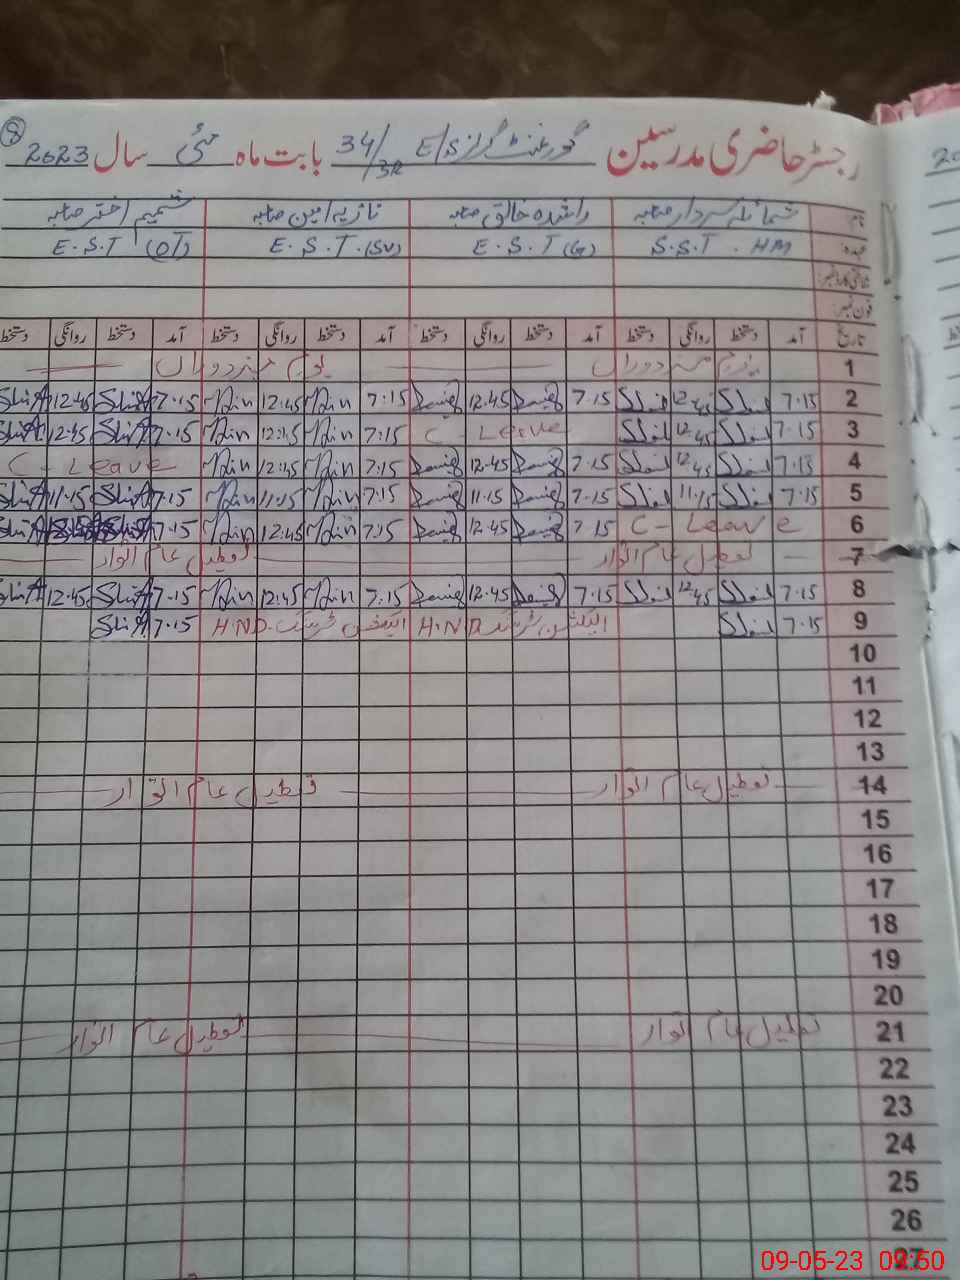 رجسٹر حاضری مدرسین گورنمنٹ گرلز E/S 34/3R بابت ماہ مئی سال 2023 8
نام: شمائلہ سردار صاحبہ راشدہ خالق صاحبہ نازیہ امین صاحبہ شمیم اختر صاحبہ
عہدہ: S.S.T. HM E.S.T (G) E.S.T. (SV) E.S.T (OT)
شناختی کارڈ نمبر:
فون نمبر:
تاریخ آمد دستخط روانگی دستخط آمد دستخط روانگی دستخط آمد دستخط روانگی دستخط آمد دستخط روانگی دستخط
1 یوم مزدوراں یوم مزدوراں
2 7.15 12.45 7.15 12.45 7.15 12.45 Min 7.15 ShiA 12.45 ShiA
3 7.15 12.45 C - Leave 7.15 Min 12.45 Min 7.15 ShiA 12.45 ShiA
4 7.15 12.45 7.15 12.45 7.15 Min 12.45 Min C - Leave
5 7.15 11.15 7.15 11.15 7.15 Min 11.15 Min 7.15 ShiA 11.15 ShiA
6 C - Leave 7.15 12.45 7.15 Min 12.45 Min 7.15 ShiA
7 تعطیل عام اتوار تعطیل عام اتوار
8 7.15 12.45 7.15 12.45 7.15 Min 12.45 Min 7.15 ShiA 12.45 ShiA
9 7.15 الیکشن ٹریننگ H.ND الیکشن ٹریننگ H.ND 7.15 ShiA
10
11
12
13
14 تعطیل عام اتوار تعطیل عام اتوار
15
16
17
18
19
20
21 تعطیل عام اتوار تعطیل عام اتوار
22
23
24
25
26
27
09-05-23 09:50